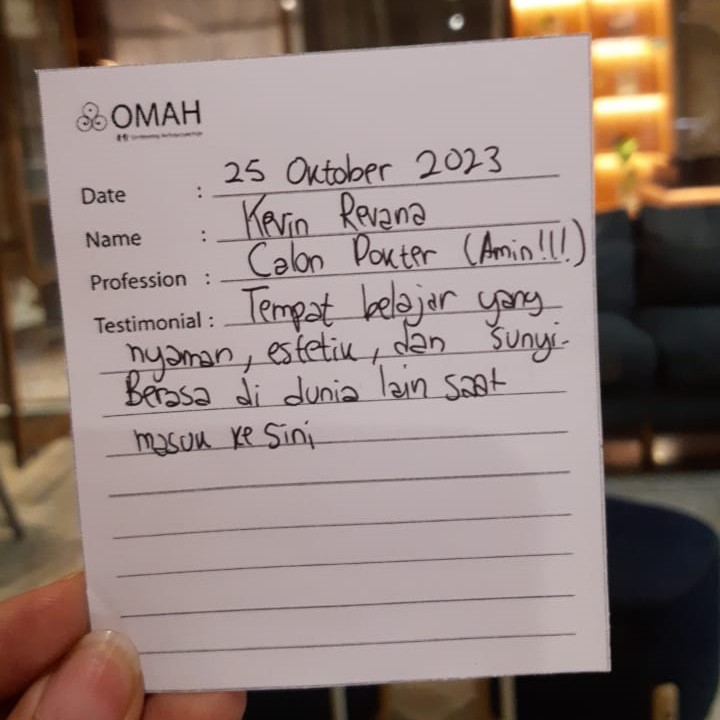 OMAH
Date : 25 Oktober 2023
Name : Kevin Revana
Profession : Calon Dokter (Amin!!!)
Testimonial : Tempat belajar yang
nyaman, estetik, dan sunyi.
Berasa di dunia lain saat
masuk ke sini